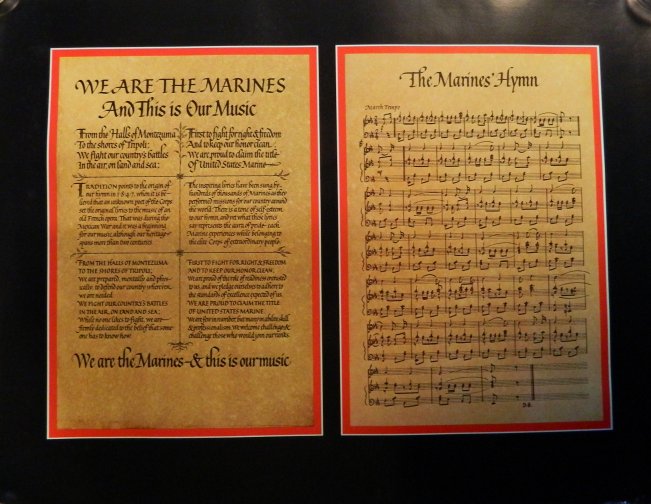 WE ARE THE MARINES
And This is Our Music
From the Halls of Montezuma
To the shores of Tripoli;
We fight our country's battles
In the air, on land and sea:
First to fight for right & freedom
And to keep our honor clean
We are proud to claim the title
Of United States Marine
TRADITION points to the origin of
our hymn in 1847, when it is be-
lieved that an unknown poet of the Corps
set the original lyrics to the music of an
old French opera. That was during the
Mexican War and it was a beginning
for our music, although our heritage
spans more than two centuries.
The inspiring lyrics have been sung by
hundreds of thousands of Marines as they
performed missions for our country around
the world. There is a tone of self-esteem
to our hymn, and yet what these lyrics
say represents the aura of pride each
Marine experiences while belonging to
the elite Corps of extraordinary people.
FROM THE HALLS OF MONTEZUMA
TO THE SHORES OF TRIPOLI,
we are prepared, mentally and phys-
ically, to defend our country wherever
we are needed.
WE FIGHT OUR COUNTRY'S BATTLES
IN THE AIR, ON LAND AND SEA;
While no one likes to fight, we are
firmly dedicated to the belief that some-
one has to know how.
FIRST TO FIGHT FOR RIGHT & FREEDOM
AND TO KEEP OUR HONOR CLEAN,
We are proud of the role of readiness entrusted
to us, and we pledge ourselves to adhere to
the standards of excellence expected of us.
WE ARE PROUD TO CLAIM THE TITLE
OF UNITED STATES MARINE.
We are few in number but many in ability, skill
& professionalism. We welcome challenges &
challenge those who would join our ranks.
We are the Marines-& this is our music
The Marines' Hymn
March Tempo
D.S.